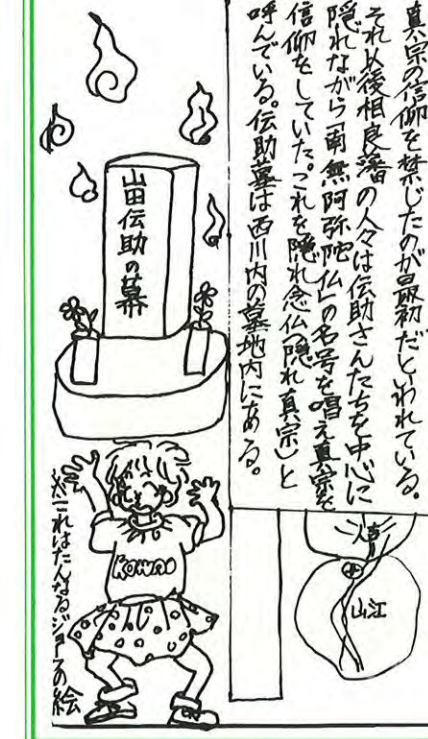 真宗の信仰を禁じたのが最初だといわれている。
それ以後相良藩の人々は伝助さんたちを中心に
隠れながら「南無阿弥陀仏」の名号を唱え真宗を
信仰をしていた。これを隠れ念仏(隠れ真宗)と
呼んでいる。伝助墓は西川内の墓地内にある。
人吉
山江
山田伝助の墓
KOWAI
※これはたんなるジョークの絵